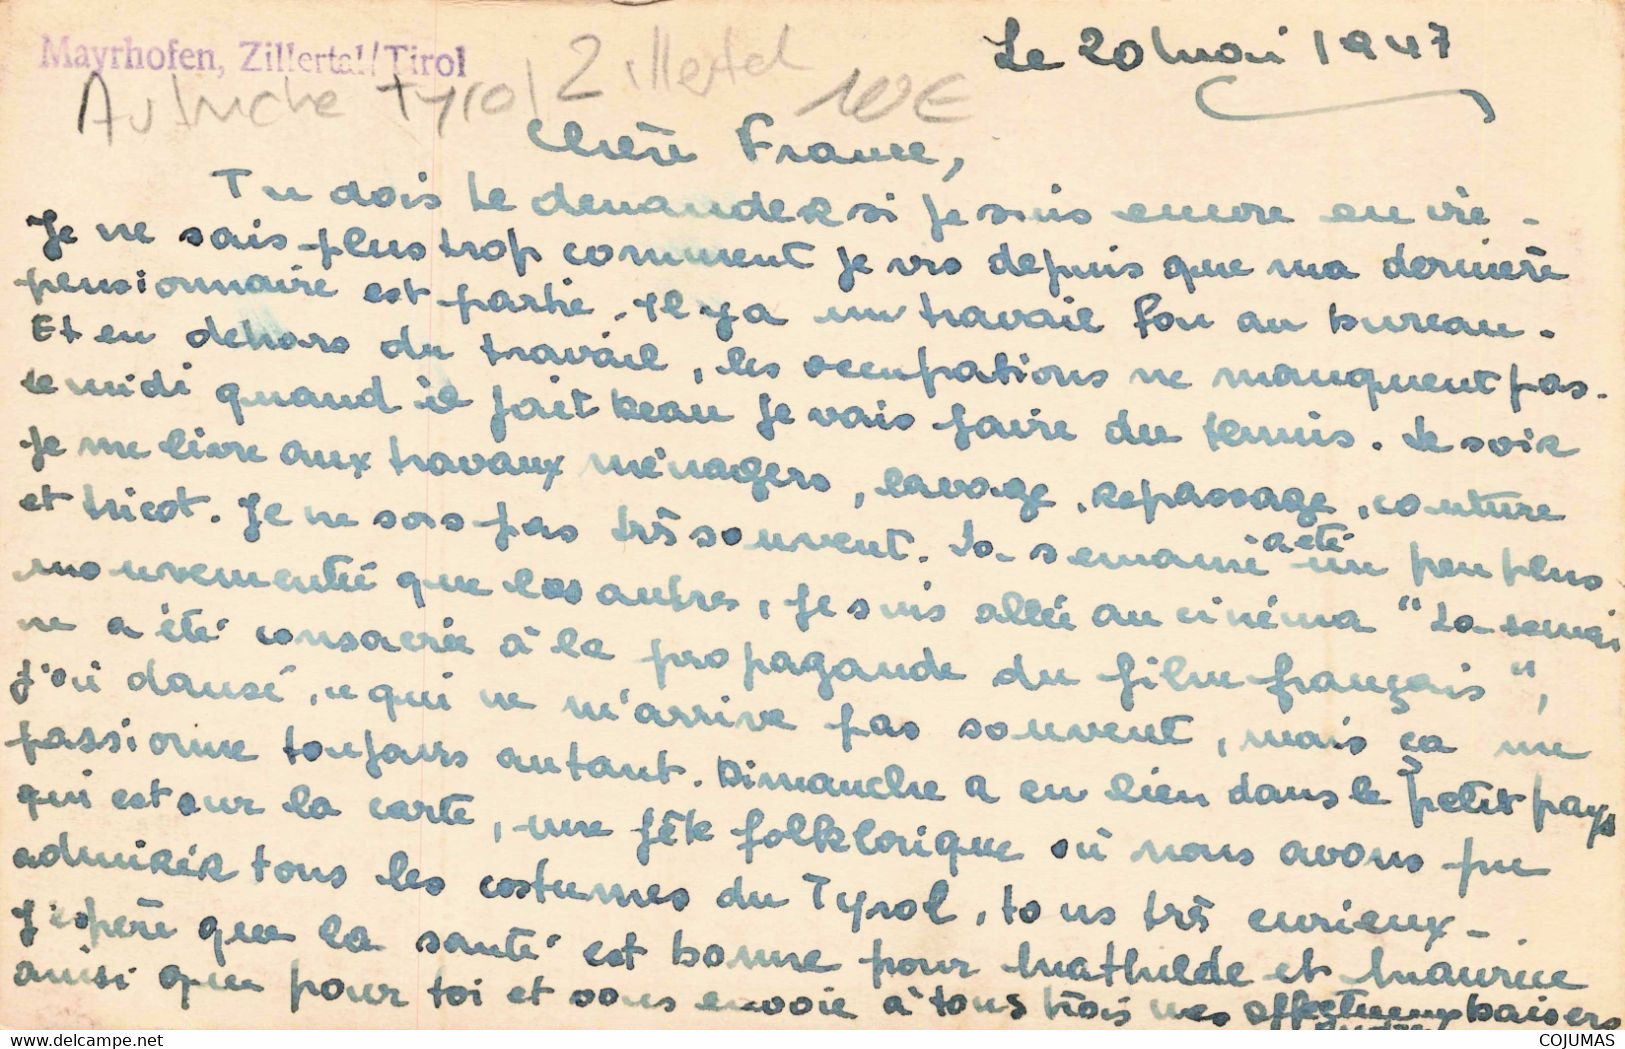 Mayrhofen, Zillertal/Tirol
Le 20 Mai 1947
Autriche Tyrol Zillertal 10€
Chère France,
Tu dois te demander si je suis encore en vie -
Je ne sais plus trop comment je vis depuis que ma dernière
pensionnaire est partie. Il y a un travail fou au bureau -
Et en dehors du travail, les occupations ne manquent pas.
Le midi quand il fait beau je vais faire du tennis. Le soir
je me livre aux travaux ménagers, lavage, repassage, couture
et tricot. Je ne sors pas très souvent. La semaine a été un peu plus
mouvementée que les autres, je suis allée au cinéma "La semai
ne a été consacrée à la propagande du film français",
j'ai dansé, ce qui ne m'arrive pas souvent, mais ça me
passionne toujours autant. Dimanche a eu lieu dans le petit pays
qui est sur la carte, une fête folklorique où nous avons pu
admirer tous les costumes du Tyrol, tous très curieux -
J'espère que la santé est bonne pour Mathilde et Maurice
ainsi que pour toi et vous envoie à tous trois mes affectueux baisers
COJUMAS